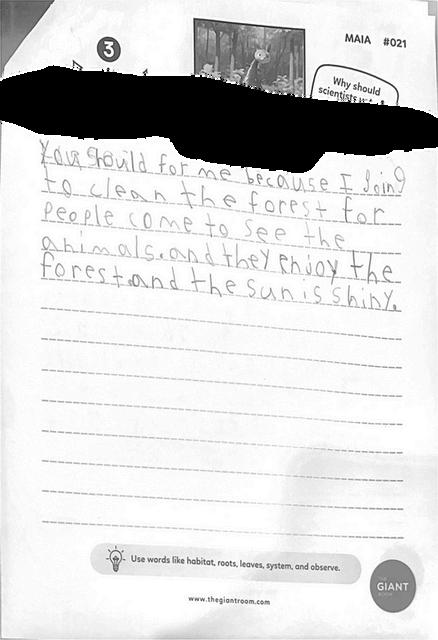 3
MAIA #021
Why should
scientists
You should for me because I going
to clean the forest for
people come to see the
animals.and they enjoy the
forest.and the sun is shiny.
Use words like habitat, roots, leaves, system, and observe.
THE
GIANT
ROOM
www.thegiantroom.com